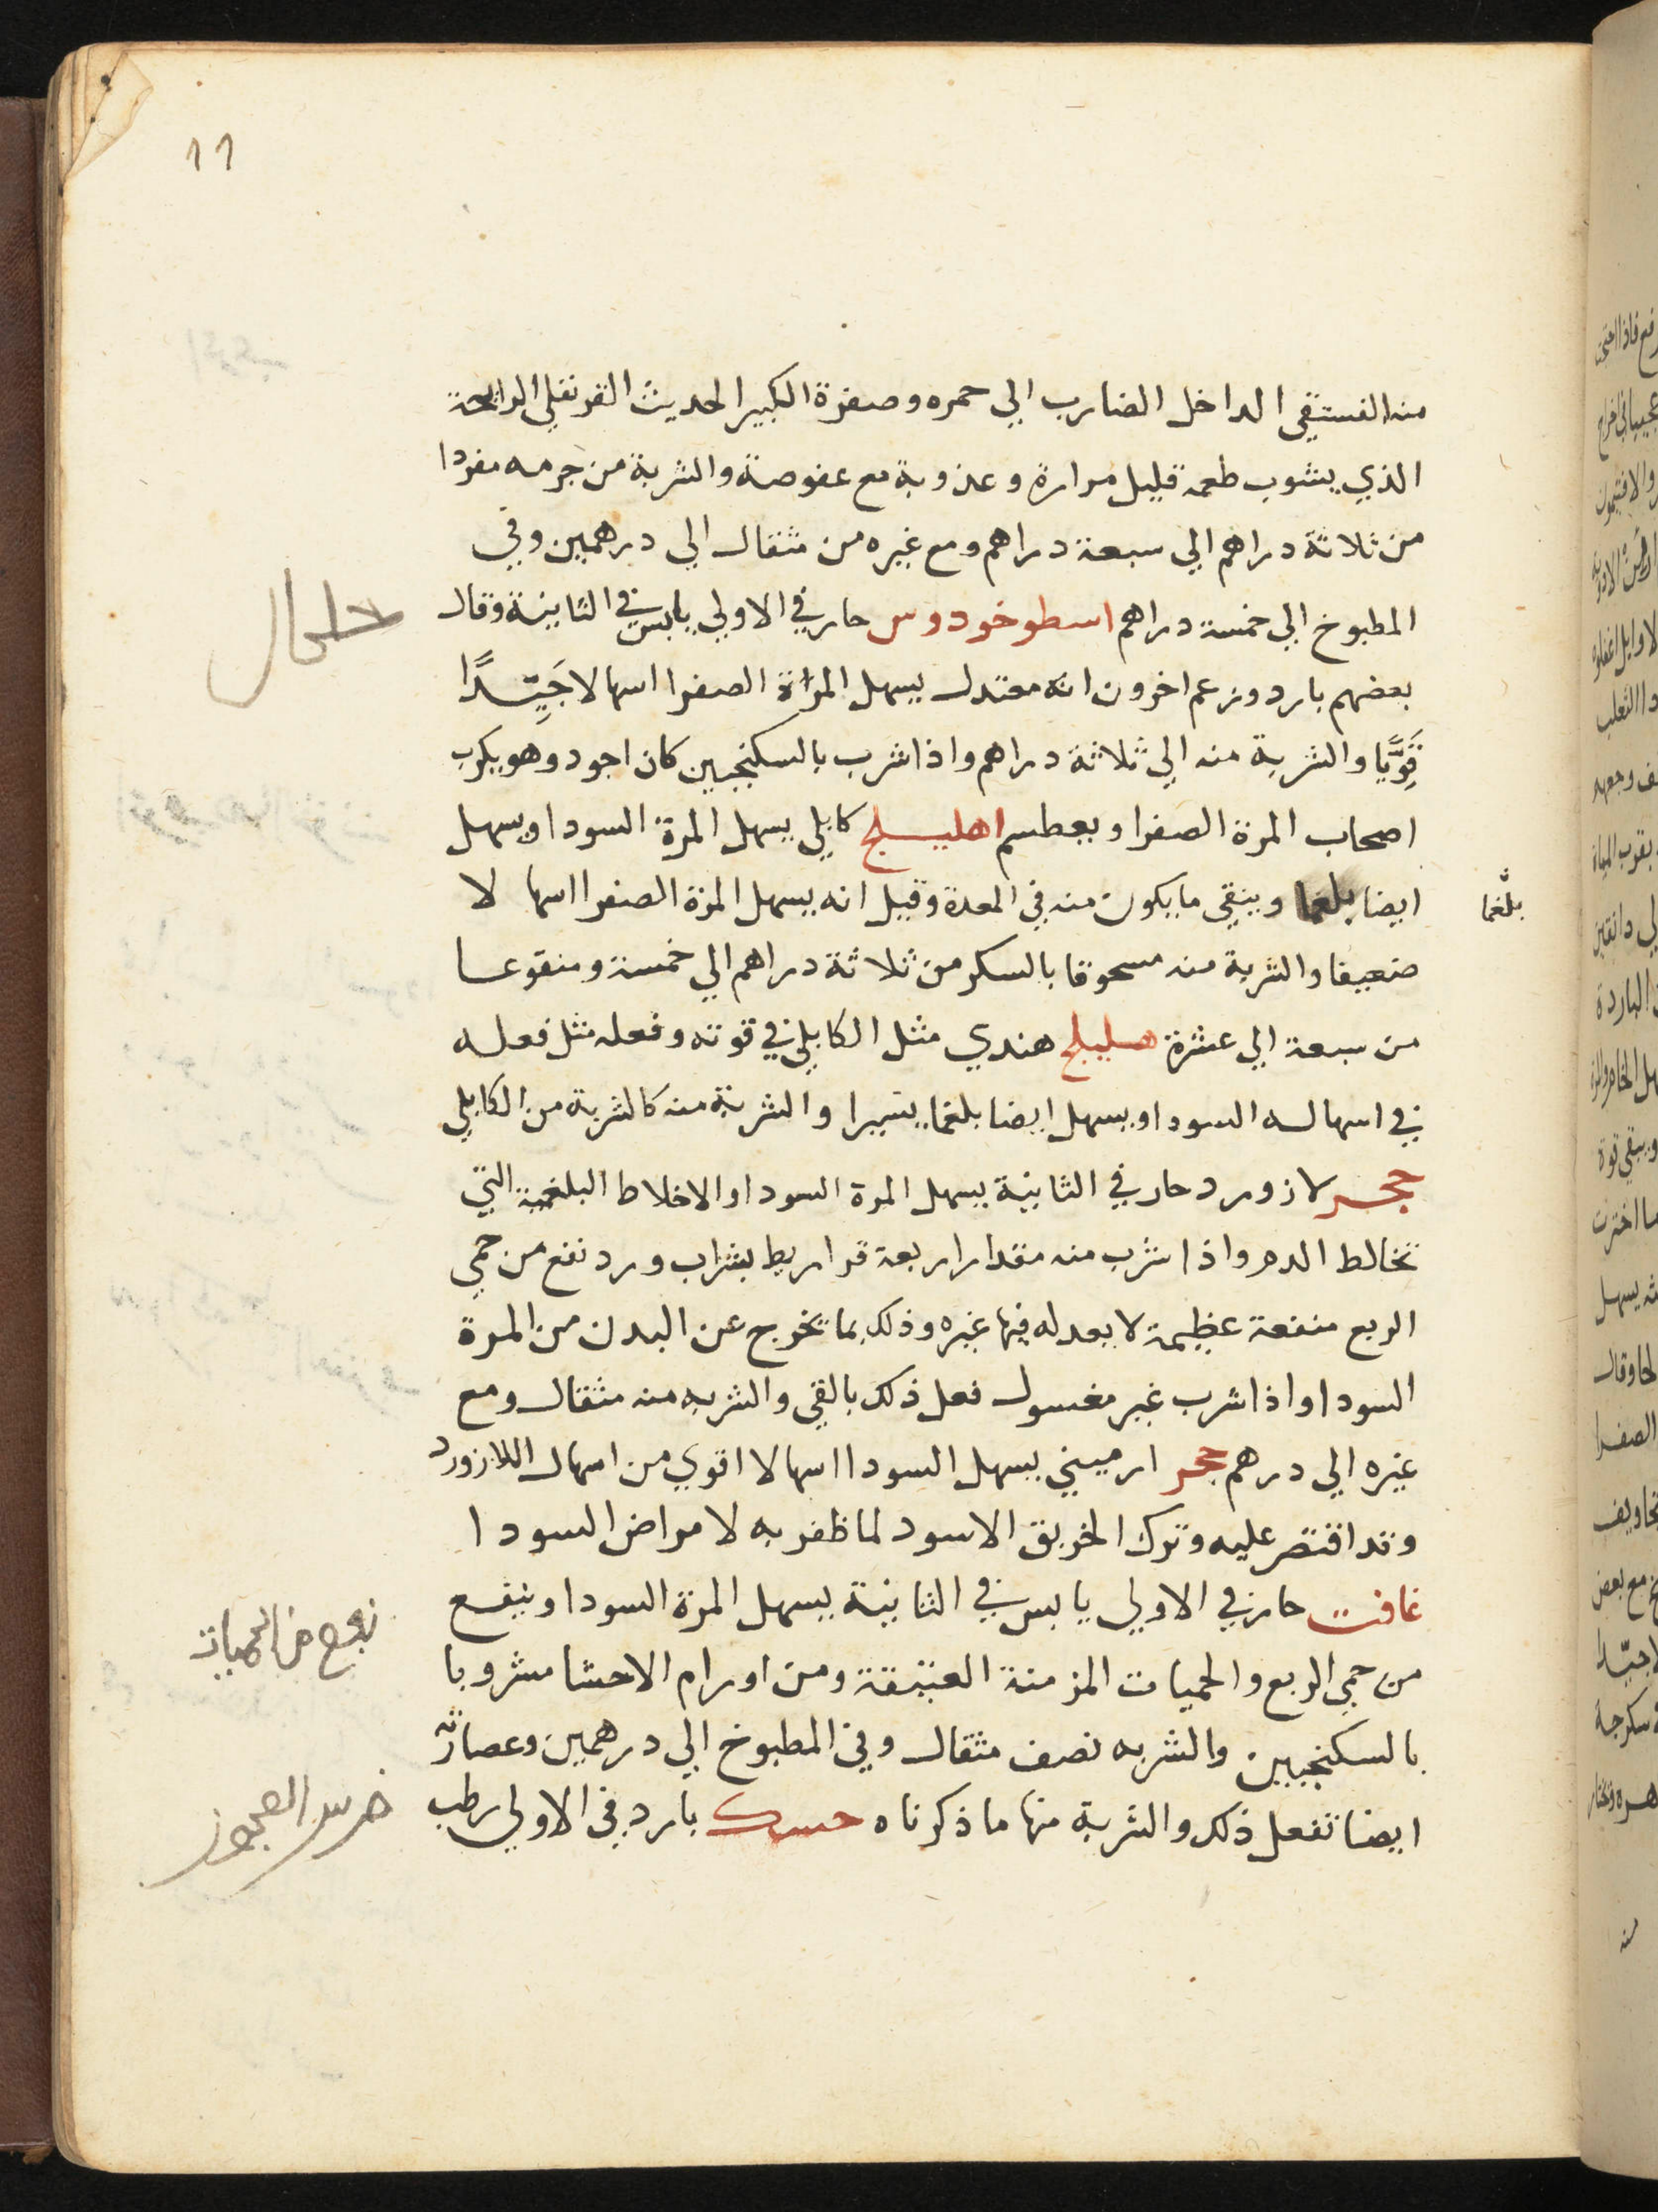 11
منه الفستقي الداخل الضارب الي حمره وصفرة الكبير الحديث القرنفلي الرايحة
الذي يشوب طعمه قليل مرارة وعذوبة مع عفوصة والشربة من جرمه مفردا
من ثلاثة دراهم الي سبعة دراهم ومع غيره من مثقال الي درهمين وفي
المطبوخ الي خمسة دراهم اسطوخودوس حار في الاولي يابس في الثانية وقال
بعضهم بارد وزعم اخرون انه معتدل يسهل المرة الصفرا اسهالا جَيِّدًا
قَوِيًّا والشربة منه الي ثلاثة دراهم واذا شرب بالسكنجبين كان اجود وهو يكرب
اصحاب المرة الصفرا ويعطسم اهليلج كابلي يسهل المرة السودا ويسهل
ايضا بلغما وينقي ما يكون منه في المعدة وقيل انه يسهل المرة الصفرا اسها لا
بلغما
ضعيفا والشربة منه مسحوقا بالسكر من ثلاثة دراهم الي خمسة ومنقوعا
من سبعة الي عشرة هليلج هندي مثل الكابلي في قوته وفعله مثل فعله
في اسهاله السودا ويسهل ايضا بلغما يسيرا والشربة منه كالشربة من الكابلي
حجر لازورد حار في الثانية يسهل المرة السودا والاخلاط البلغمية التي
تخالط الدم واذا شرب منه مقدار اربعة قراريط بشراب ورد نفع من حمي
الربع منفعة عظيمة لا يعدله فيها غيره وذلك بما يخرج عن البدن من المرة
السودا واذا شرب غير مغسول فعل ذلك بالقي والشربه منه مثقال ومع
غيره الي درهم حجر ارميني يسهل السودا اسهالا اقوي من اسهال اللازورد
وقد اقتصر عليه وترك الخربق الاسود لما ظفر به لامراض السودا
غافت حار في الاولي يابس في الثانية يسهل المرة السودا وينفع
من حمي الربع والحميات المزمنة العتيقة ومن اورام الاحشا مشروبا
بالسكنجبين والشربه نصف مثقال وفي المطبوخ الي درهمين وعصارته
ايضا تفعل ذلك والشربة منها ما ذكرناه حسك بارد في الاولي رطب
من الحميات
ضرس العجوز